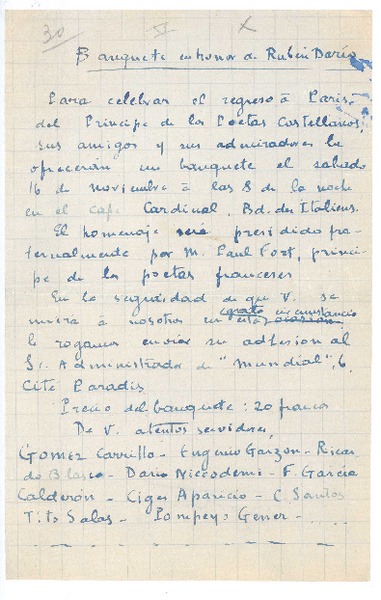 30 V X
Banquete en honor de Rubén Darío
Para celebrar el regreso á Paris,
del Principe de los Poetas Castellanos,
sus amigos y sus admiradores le
ofrecerán un banquete el sabado
16 de noviembre á las 8 de la noche
en el café Cardinal, Bd. des Italiens.
El homenaje será presidido fra-
ternalmente por M. Paul Fort, princi-
pe de los poetas franceses
En la seguridad de que V. se
grata circunstancia
unirá á nosotros en esta ocasion
le rogamos enviar su adhesion al
Sr. Administrador de "Mundial", 6,
Cité Paradis
Precio del banquete: 20 francos
De V. atentos servidores,
Gomez Carrillo - Eugenio Garzon - Ricar
do Blasco - Dario Niccodemi - F. García
Calderon - Ciges Aparicio - C. Santos
Tito Salas - Pompeyo Gener -